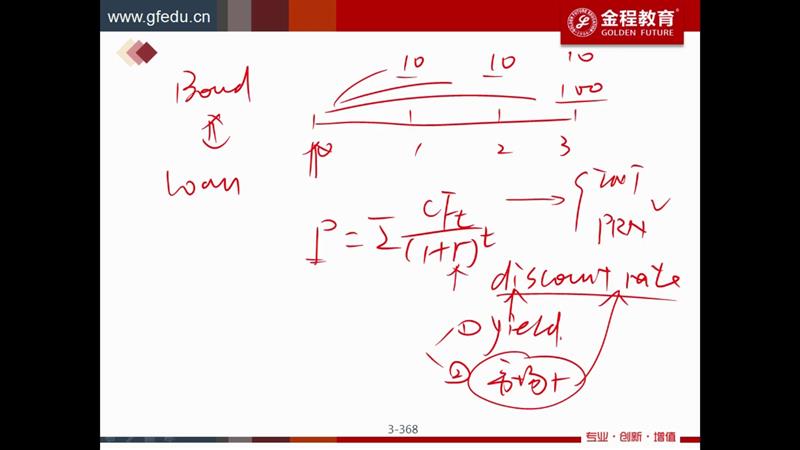 www.gfedu.cn
金程教育
GOLDEN FUTURE
Bond
10 10 10
100
0 1 2 3
Loan
INT
PRN
P = Σ CFt / (1+r)^t
discount rate
① yield
②
3-368
专业·创新·增值